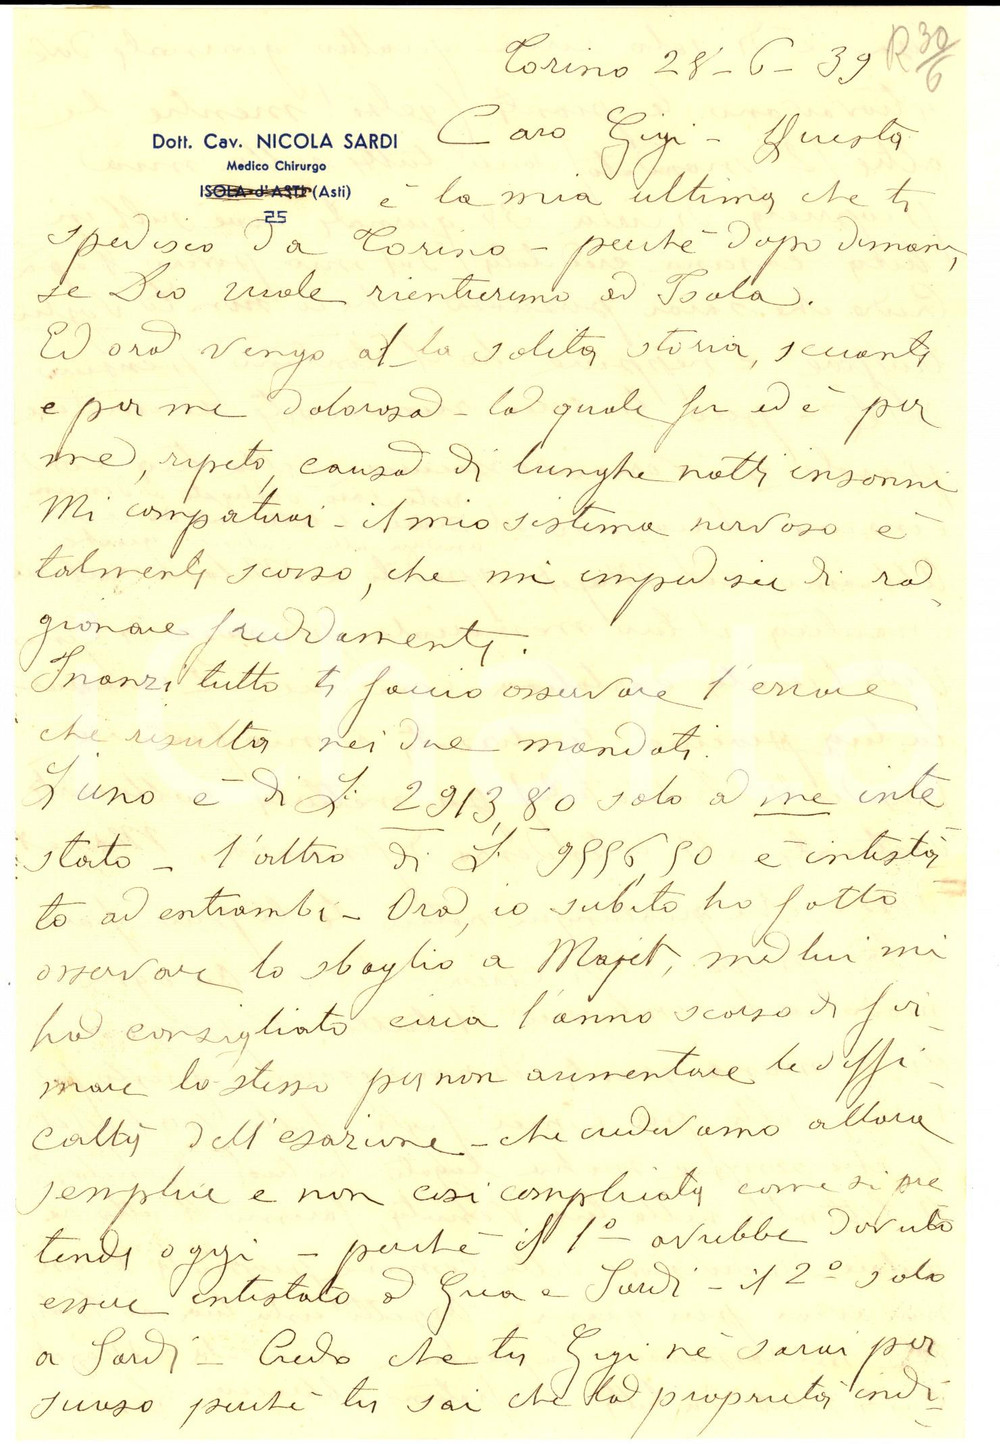 Torino 28-6-39 R 30/6
Dott. Cav. NICOLA SARDI
Medico Chirurgo
ISOLA d'ASTI (Asti)
25
Caro Gigi - Questa
è la mia ultima che ti
spedisco da Torino - perchè dopo dimani,
se Dio vuole rientreremo ad Isola.
Ed ora vengo alla solita storia, seccante
e per me dolorosa - la quale fu ed è per
me, ripeto, causa di lunghe notti insonni
Mi compatirai - il mio sistema nervoso è
talmente scosso, che mi impedisce di ra-
gionare freddamente.
Inanzi tutto ti faccio osservare l'errore
che risulta nei due mandati.
L'uno è di L. 2913,80 solo a me inte
stato - l'altro di L. 9556,50 è intesta
to ad entrambi - Ora, io subito ho fatto
osservare lo sbaglio a Majet, ma lui mi
ha consigliato circa l'anno scorso di fir-
mare lo stesso per non aumentare le diffi-
coltà dell'esazione - che credevamo allora
semplice e non così complicata come si pre
tende oggi - perchè il 1° avrebbe dovuto
essere intestato a Grea e Sardi - il 2° solo
a Sardi - Credo che tu Gigi nè sarai per
suaso perchè tu sai che la proprietà indi-